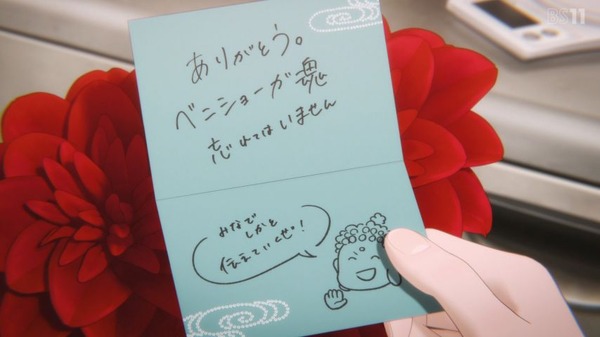 BS11
ありがとう。
ベニショーガ魂
忘れてはいません
みなで
しかと
伝えていくぜ!